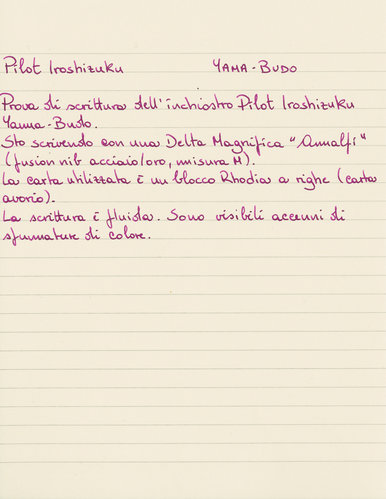 Pilot Iroshizuku YAMA-BUDO
Prova di scrittura dell'inchiostro Pilot Iroshizuku
Yama-Budo.
Sto scrivendo con una Delta Magnifica "Amalfi"
(fusion nib acciaio/oro, misura M).
La carta utilizzata è un blocco Rhodia a righe (carta
avorio).
La scrittura è fluida. Sono visibili accenni di
sfumature di colore.